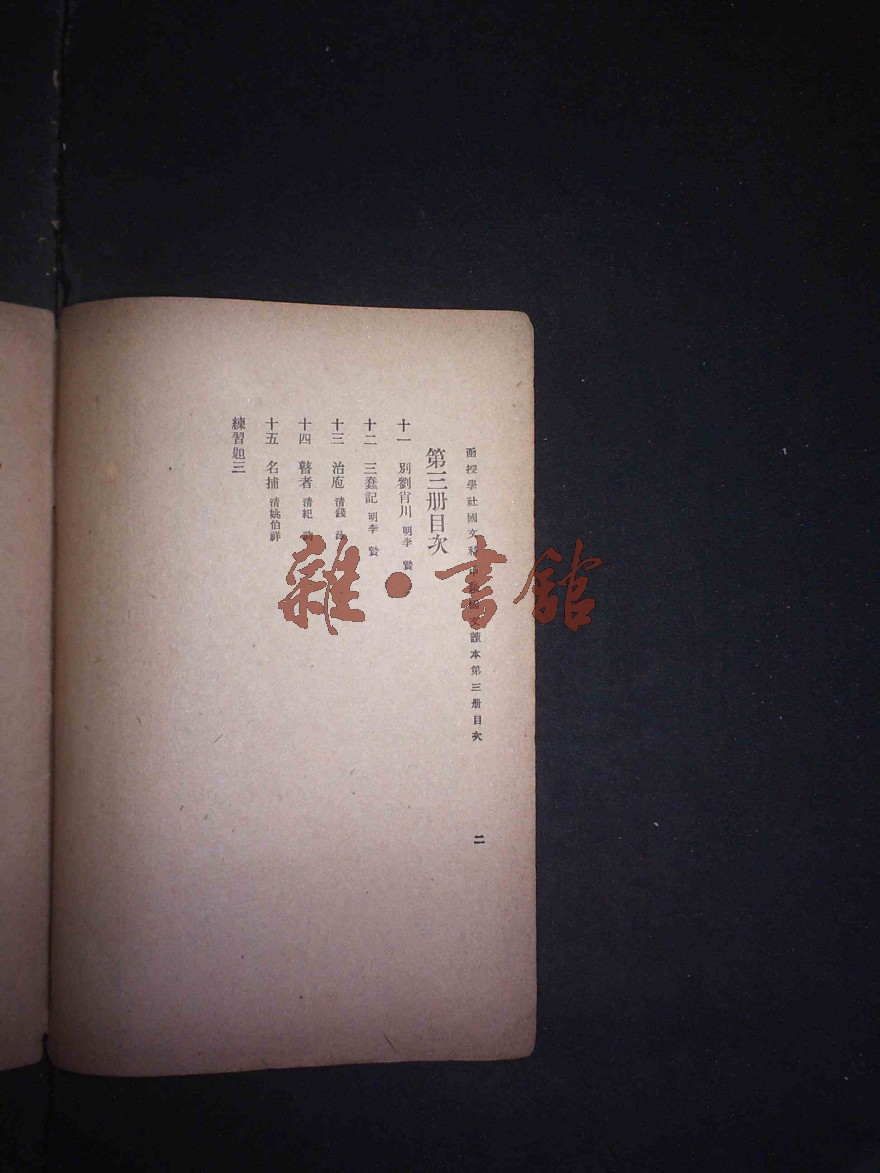 函授學社國文科 讀本第三册目次
第三册目次
十一 別劉肖川 明李贄
十二 三蠢記 明李贄
十三 治庖 清錢
十四 瞽者 清紀昀
十五 名捕 清姚伯祥
練習題三
二
雜·書館